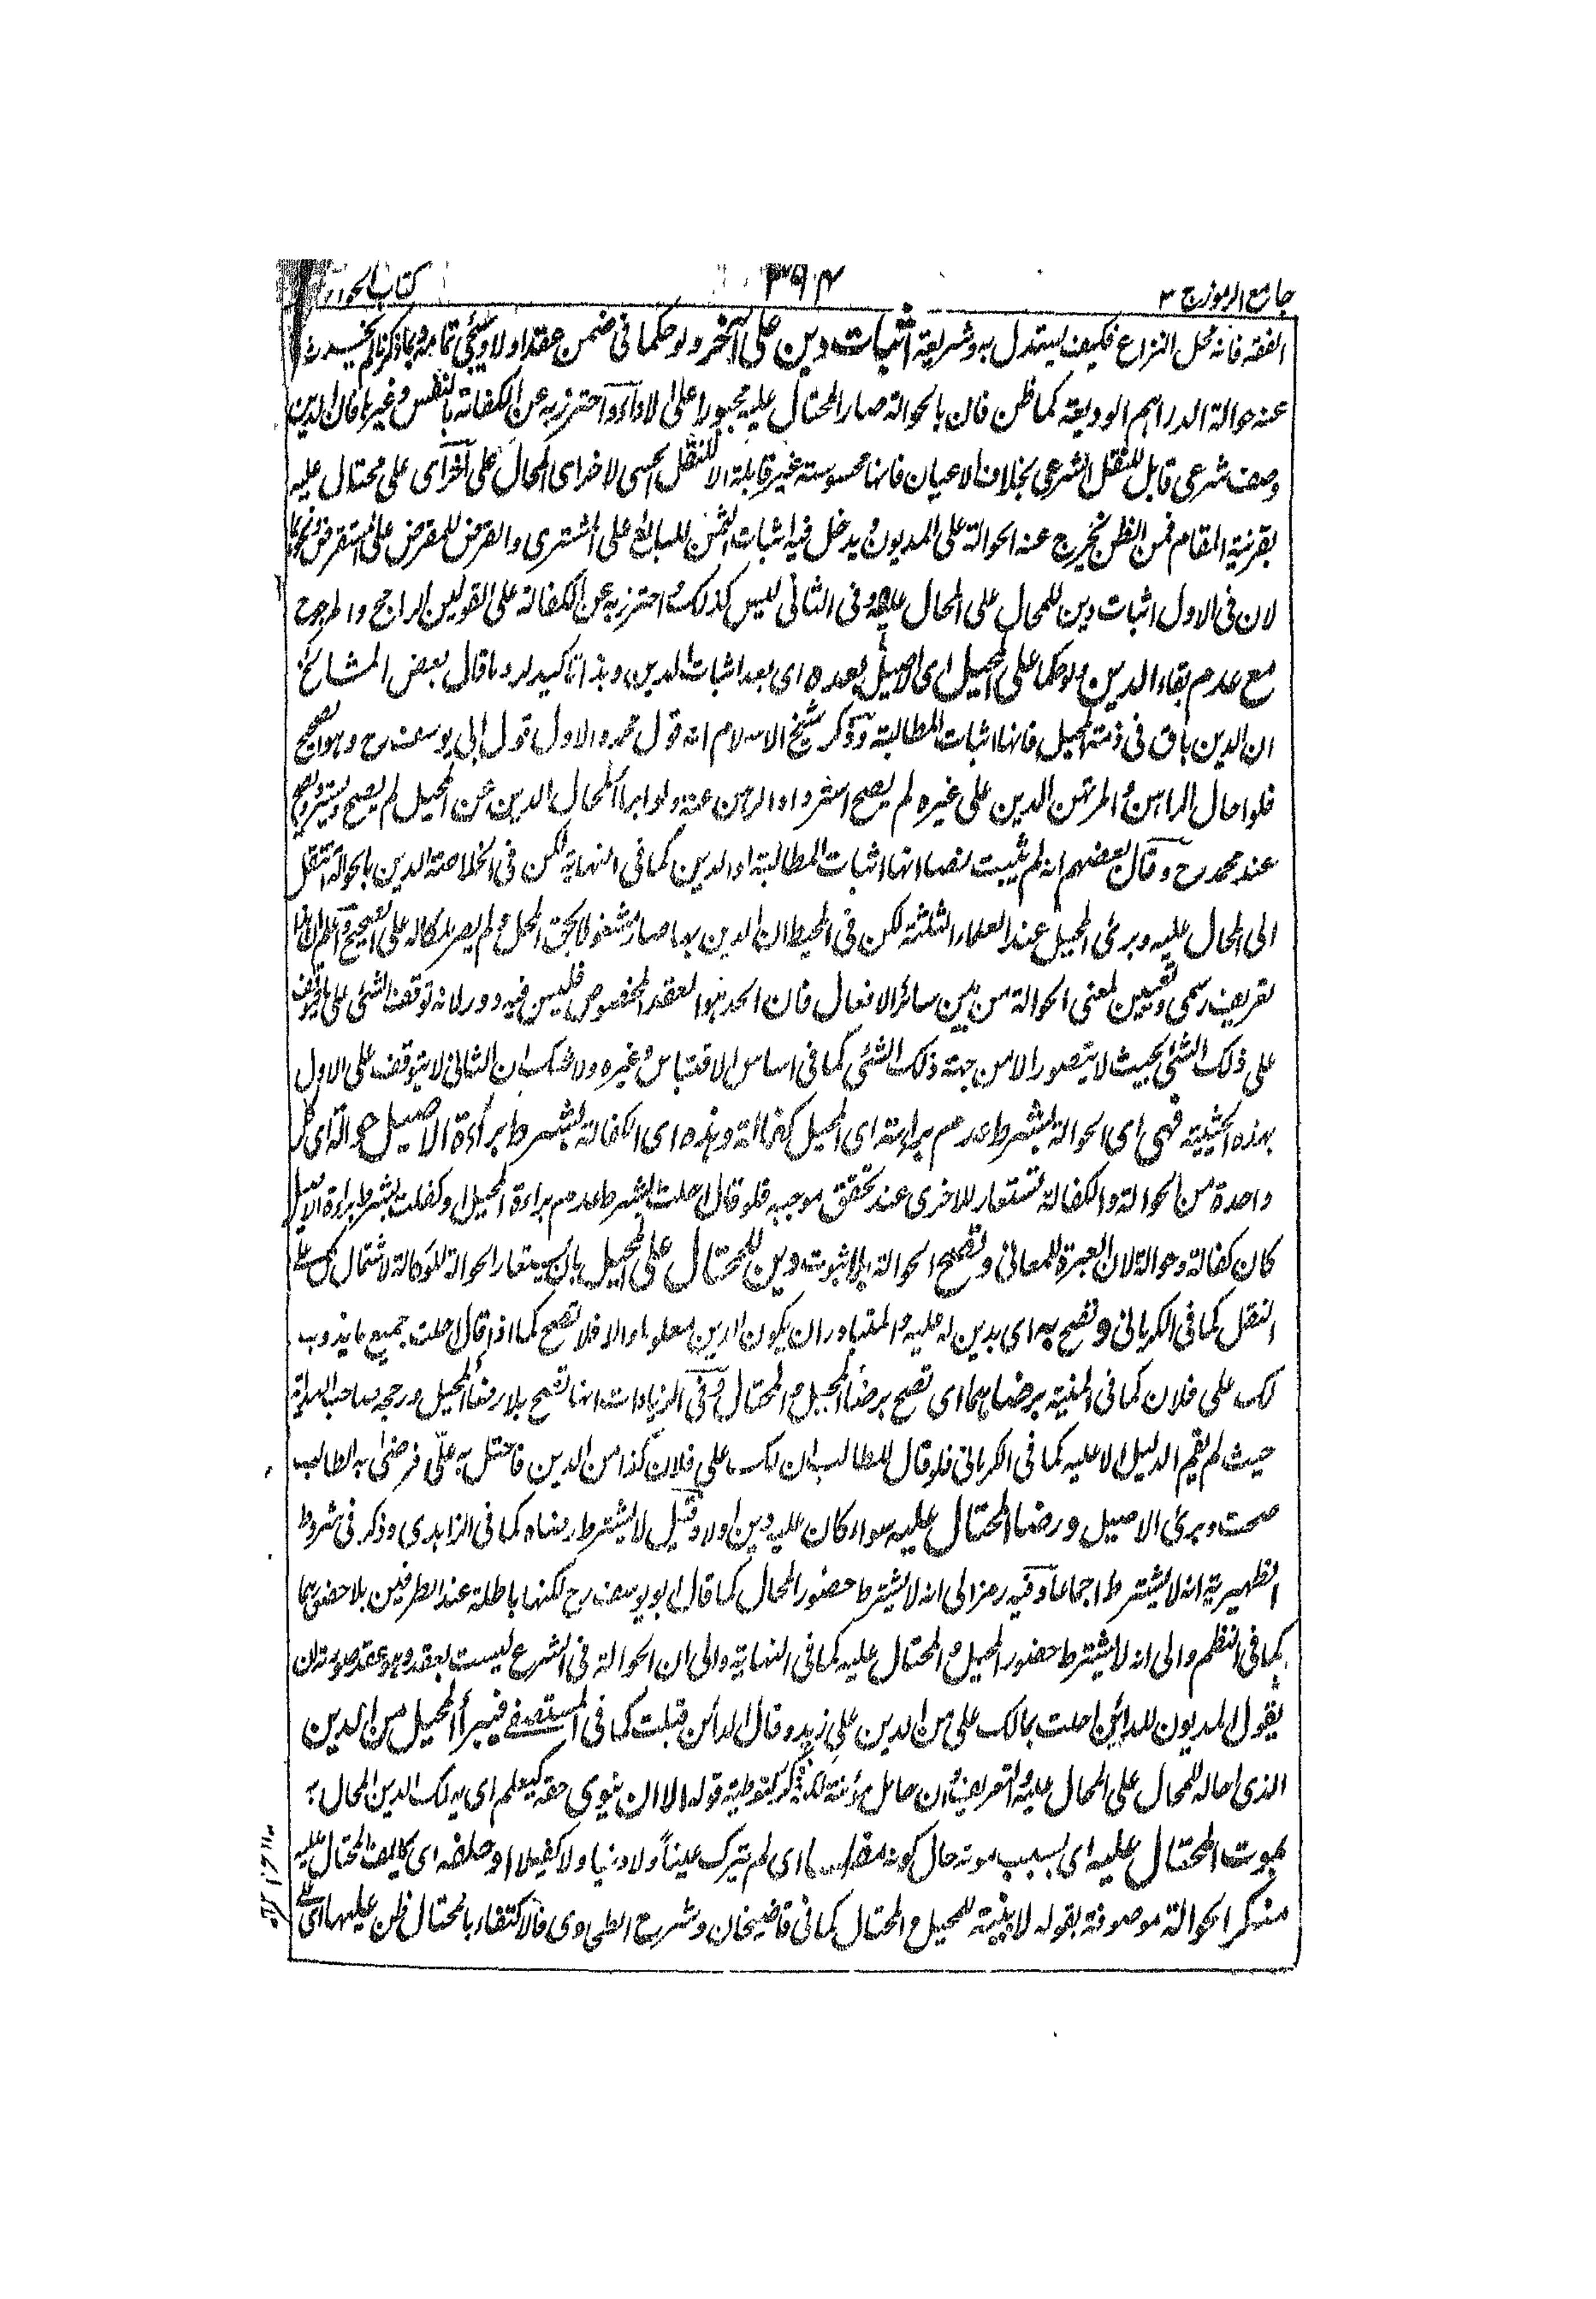 جامع الرموز ج ٣
٣٩٤
كتاب الحوالة
الفقه فانه محل النزاع فكيف يستدل به وشريعة اثبات دين على آخر ولو حكما فى ضمن عقد اولا وسيجئ تمامه وبما ذكرنا لم يخرج
عنه حوالة الدراهم الوديعة كما ظن فان بالحوالة صار المحتال عليه مجبورا على الاداء واحترز به عن الكفالة بالنفس وغيرها فان الدين
وصف شرعى قابل للنقل الشرعى بخلاف الاعيان فانها محسوسة غير قابلة الا للنقل الحسى لاخر اى المحال على آخر اى على محتال عليه
بقرينة المقام فمن الظن يخرج عنه الحوالة على المديون ويدخل فيه اثبات الثمن للبائع على المشترى والقرض للمقرض على المستقرض ونحوها
لان فى الاول اثبات دين للمحال على المحال عليه وفى الثانى ليس كذلك واحترز به عن الكفالة على القولين الراجح والمرجوح
مع عدم بقاء الدين ولو حكما على المحيل اى الاصيل بعده اى بعد اثبات الدين وهذا تاكيد لرد ما قال بعض المشائخ
ان الدين باق فى ذمة المحيل فانها اثبات المطالبة وذكر شيخ الاسلام انه قول محمد والاول قول ابى يوسف رح وهو الصحيح
فلو احال الراهن المرتهن الدين على غيره لم يصح استرداد الرهن عنه ولو ابرأ المحال الدين عن المحيل لم يصح ويسترد ويصح
عند محمد رح وقال بعضهم انه لم يثبت نصا انها اثبات المطالبة او الدين كما فى النهاية لكن فى الخلاصة الدين بالحوالة تنتقل
الى المحال عليه وبرئ المحيل عند العلماء الثلثة لكن فى المحيط ان الدين بها صار مشغولا بحق المحال ولم يصر ملكا له على الصحيح واعلم ان هذا
تعريف رسمى وتعيين لمعنى الحوالة من بين سائر الافعال فان الحد هو العقد المخصوص فليس فيه دور لانه توقف الشئ على ما يتوقف
على ذلك الشئ بحيث لا يتصور الا من جهة ذلك الشئ كما فى اساس الاقتباس وغيره ولا شك ان الثانى لا يتوقف على الاول
بهذه الحيثية فهى اى الحوالة بشرط عدم براءته اى المحيل كفالة وهذه اى الكفالة بشرط براءة الاصيل حوالة اى كل
واحدة من الحوالة والكفالة تستعار للاخرى عند تحقق موجبه فلو قال احلت بشرط عدم براءة المحيل او كفلت بشرط براءة الاصيل
كان كفالة وحوالة لان العبرة للمعانى وتصح الحوالة بلا ثبوت دين للمحتال على المحيل بان يستعار الحوالة للوكالة لاشتمال كل على
النقل كما فى الكرمانى وتصح به اى بدين له عليه والمتبادر ان يكون الدين معلوما والا فلا تصح كما اذا قال احلت جميع ما يذوب
لك على فلان كما فى المنية برضاهما اى تصح برضا المحيل والمحتال وفى الزيادات انها تصح بلا رضا المحيل ورجحه صاحب الهداية
حيث لم يقم الدليل الا عليه كما فى الكرمانى فلو قال للمطالب ان لك على فلان كذا من الدين فاحتل به علىّ فرضى به الطالب
صحت وبرئ الاصيل ورضا المحتال عليه سواء كان عليه دين اولا وقيل لا يشترط رضاه كما فى الزاهدى وذكر فى شروط
الظهيرية انه لا يشترط اجماعا وفيه رمز الى انه لا يشترط حضور المحال كما قال ابو يوسف رح لكنها باطلة عند الطرفين بلا حضورهما
كما فى النظم والى انه لا يشترط حضور المحيل والمحتال عليه كما فى النهاية والى ان الحوالة فى الشرع ليست بعقد وهو عقد صورته ان
يقول المديون للدائن احلت بمالك على من الدين على زيد وقال الدائن قبلت كما فى المستصفى فيبرأ المحيل من الدين
الذى احاله للمحال على المحال عليه والتعريف وان حامل مؤنته لكنه ذكر كتوطية قوله الا ان ينوى حقه كيعلم اى يهلك الدين المحال به
بموت المحتال عليه اى بسبب موته حال كونه مفلسا اى لم يترك عينا ولا دينا ولا كفيلا او حلفه اى كالف المحتال عليه
منكر الحوالة موصوفة بقوله لا بينة للمحيل والمحتال كما فى قاضيخان وشرح الطحاوى فالاكتفاء بالمحتال ظن عليها اى على